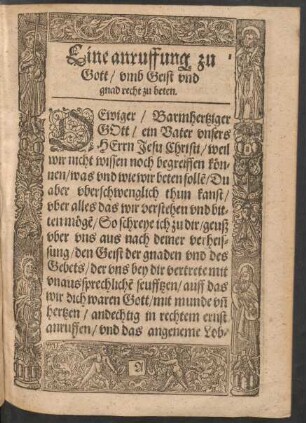 Eine anruffung zu
Gott / vmb Geist vnd
gnad recht zu beten.
O Ewiger / Barmhertziger
GOtt / ein Vater vnsers
HErrn Jesu Christi / weil
wir nicht wissen noch begreiffen kön-
nen / was vnd wie wir beten sollē / Du
aber vberschwenglich thun kanst /
vber alles das wir verstehen vnd bit-
ten mögē / So schreye ich zu dir / geuß
vber vns aus nach deiner verheis-
sung / den Geist der gnaden vnd des
Gebets / der vns bey dir vertrete mit
vnaussprechlichē seufftzen / auff das
wir dich waren Gott / mit munde vñ
hertzen / andechtig in rechtem ernst
anruffen / vnd das angeneme Lob-
A